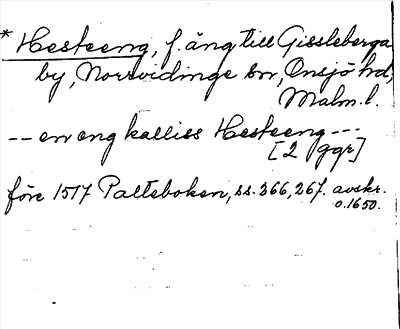 * Hesteeng, f. äng till Gissleberga
by, Norrvidinge sn, Onsjö hd,
Malm. l.
-- en eng kalliss Hesteeng ---
[2 ggr]
före 1517 Palteboken, ss. 266, 267. avskr.
o. 1650.